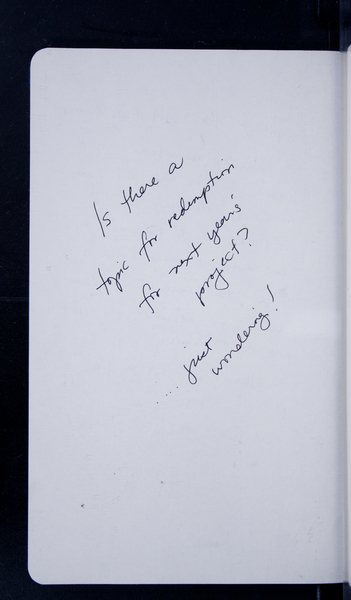 Is there a
topic for redemption
for next year's
project?
.... just
wondering!